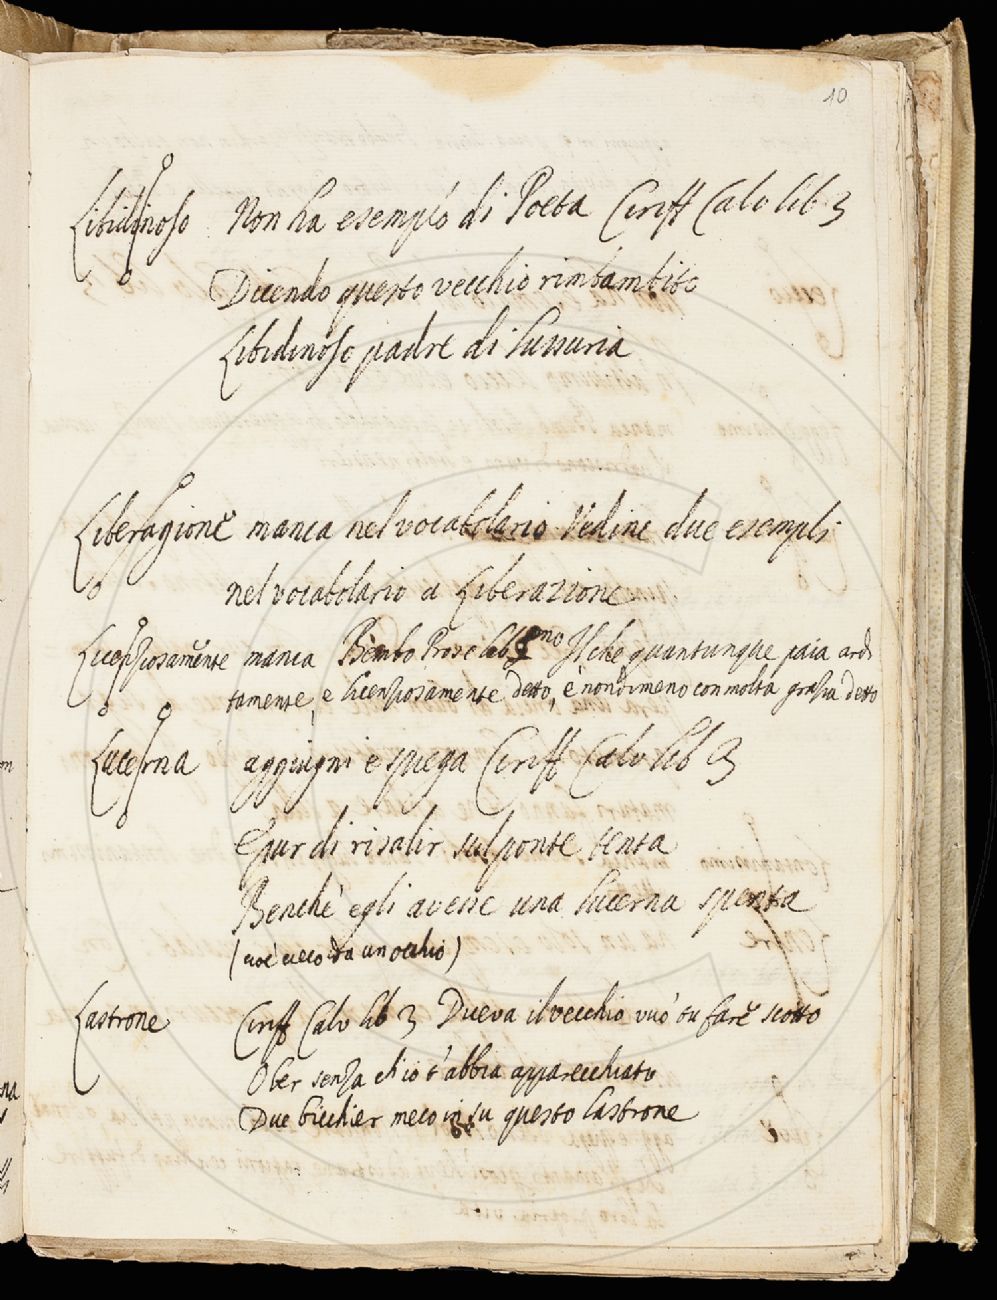 10
Libidinoso Non ha esempio di Poeta Ciriff Calv lib 3
Dicendo questo vecchio rimbambito
Libidinoso padre di lussuria
Liberagione manca nel vocabolario Vedine due esempli
nel vocabolario a Liberazione
Licenziosamente manca Bembo Prose lib Il che quantunque paia ardi
tamente, e licenziosamente detto, è nondimeno con molta grazia detto
Lucerna aggiugni e spiega Ciriff Calv lib 3
E pur di risalir sul ponte tenta
Benchè egli avesse una lucerna spenta
(cioè cieco da un occhio)
Lastrone Ciriff Calv lib 3 Diceva il vecchio vuo tu fare scotto
O ber senza ch'io t'abbia apparecchiato
Due bicchier meco in su questo lastrone